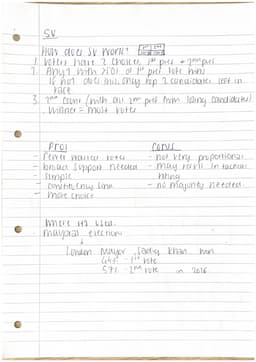 SV
How does SV work?
1. Voters have 2 choices, 1st pref + 2nd pref
2. Any1 with >50% of 1st pref vote wins
If not does this, only top 2 candidates left in
race
3. 2nd count (with all 2nd pref from losing candidates)
winner = most votes
Pros
Cons
- Fewer wasted votes
- not very proportional
- broad support needed
- may result in tactical
voting
- simple
- constituency link
- no majority needed
- more choice
Where its used.
- mayoral elections
London Mayor, Sadiq Khan won
44% - 1st vote
57% - 2nd vote in 2016